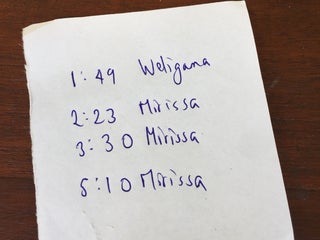 1:49 Weligana
2:23 Mirissa
3:30 Mirissa
5:10 Mirissa